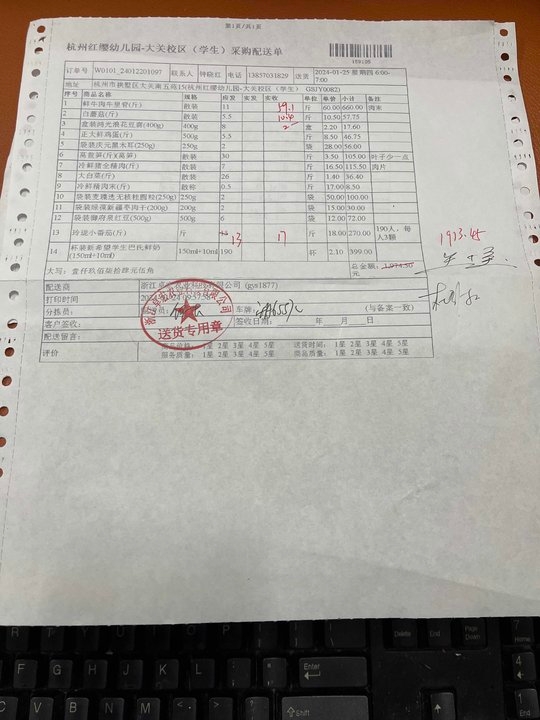 第1页/共1页
杭州红缨幼儿园-大关校区（学生）采购配送单
159105
订单号 W0101_24012201097 联系人 钟晓红 电话 13857031829 送货 2024-01-25 星期四 6:00-7:00
地址 杭州市拱墅区大关南五苑15(杭州红缨幼儿园-大关校区（学生） GSJY0082)
序号 商品名称 规格 应发 实发 实收 单位 单价 小计 备注
1 鲜牛肉牛里脊(斤) 散装 11 斤 60.00 660.00 肉末
2 白蘑菇(斤) 散装 5.5 10.4 斤 10.50 57.75
3 盒装鸿光浪花豆腐(400g) 400g 8 盒 2.20 17.60
4 正大鲜鸡蛋(斤) 散装 5.5 斤 8.50 46.75
5 袋装庆元黑木耳(250g) 250g 2 袋 28.00 56.00
6 莴苣笋(斤)(莴笋) 散装 30 斤 3.50 105.00 叶子少一点
7 冷鲜猪全精肉(斤) 散装 7 斤 16.50 115.50 肉片
8 大白菜(斤) 散装 26 斤 1.40 36.40
9 冷鲜精肉末(斤) 散称 0.5 斤 17.00 8.50
10 袋装麦臻选无核桂圆粒(250g) 250g 2 袋 50.00 100.00
11 袋装绿葆新疆枣肉干(200g) 200g 2 袋 15.00 30.00
12 袋装御府泉红豆(500g) 500g 6 袋 12.00 72.00
13 玲珑小番茄(斤) 斤 13 17 斤 18.00 270.00 190人，每人3颗
14 杯装新希望学生巴氏鲜奶(150ml+10ml) 150ml+10ml 190 杯 2.10 399.00
1973.45
大写：壹仟玖佰柒拾肆元伍角 总金额：1,974.50元
配送商 浙江卓 有限公司 (gys1877)
打印时间
分拣员： 车牌： (与备案一致)
客户签收： 签收日期： 年 月 日
配送留言：
评价 商品价格： 1星 2星 3星 4星 5星 送货时间： 1星 2星 3星 4星 5星
服务质量： 1星 2星 3星 4星 5星 商品质量： 1星 2星 3星 4星 5星
送货专用章
Delete
End
Page Down
7 Home
Y U I O P
F G H J K L
Enter
4
C V B N M
Shift
1